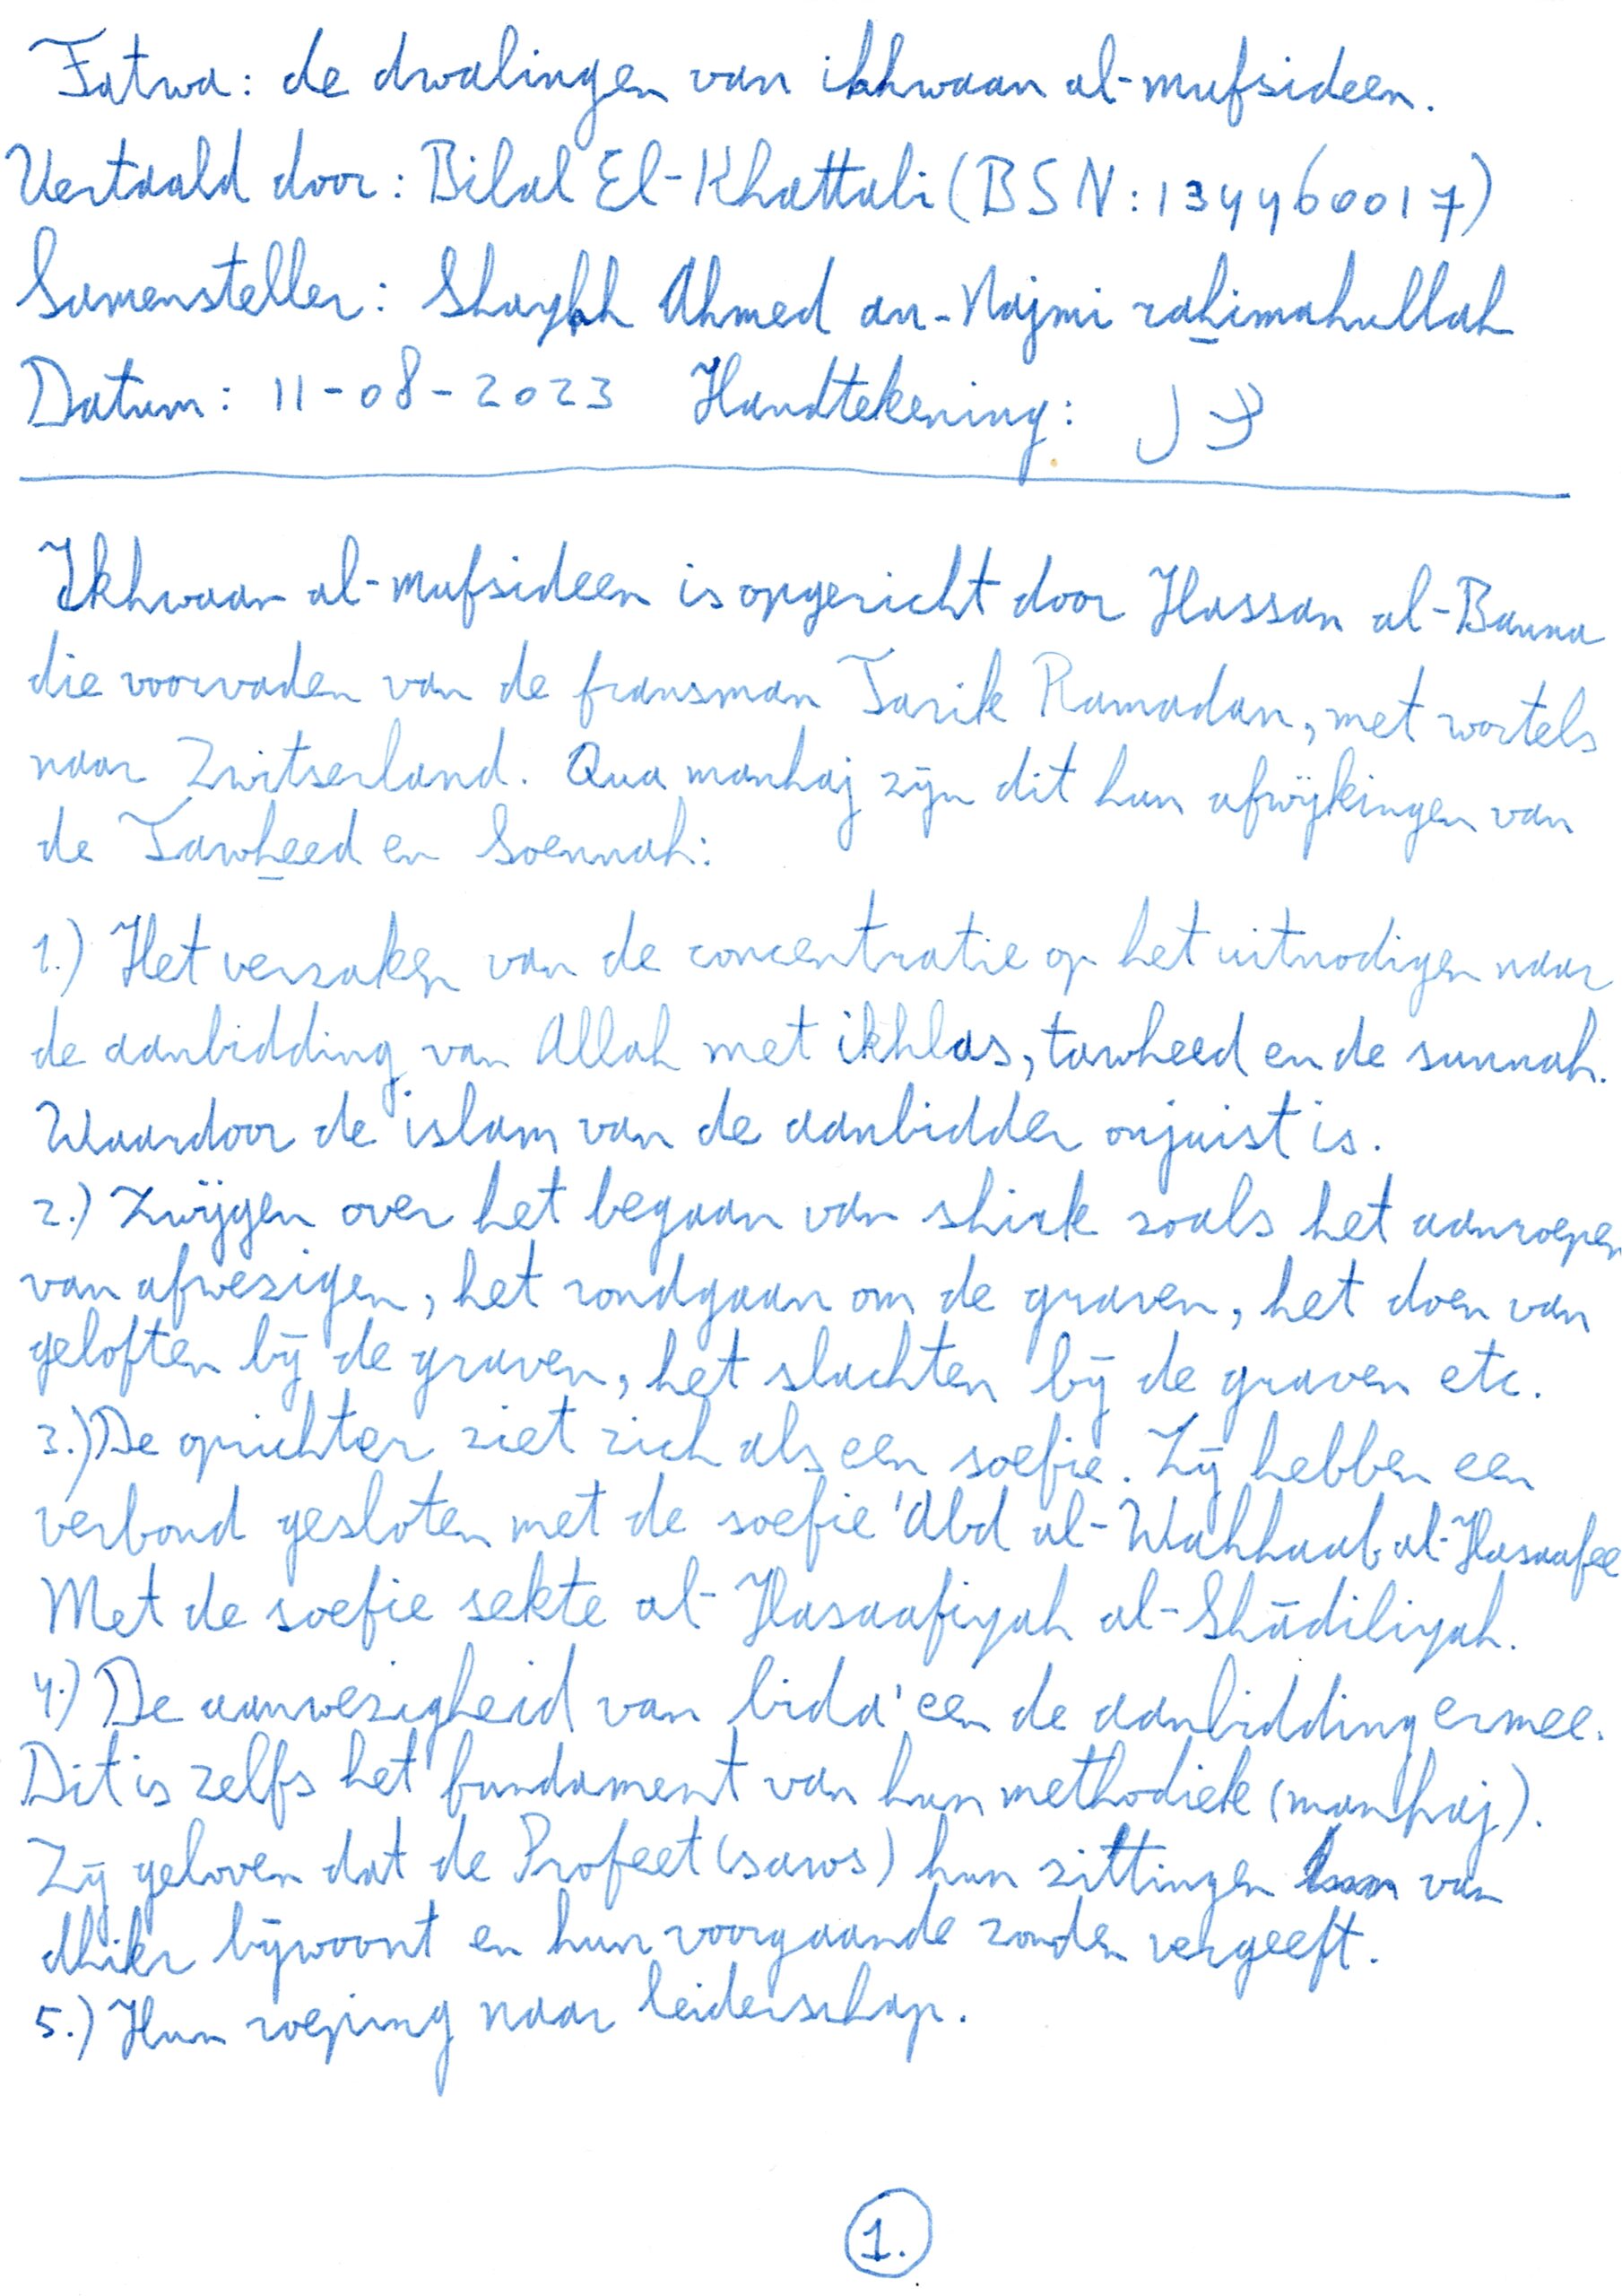 Fatwa: de dwalingen van ikhwaan al-mufsideen.
Vertaald door: Bilal El-Khattabi (BSN: 134460017)
Samensteller: Shaykh Ahmed an-Najmi rahimahullah
Datum: 11-08-2023 Handtekening:
Ikhwaan al-mufsideen is opgericht door Hassan al-Banna
die voorvader van de fransman Tarik Ramadan, met wortels
naar Zwitserland. Qua manhaj zijn dit hun afwijkingen van
de Tawheed en Soennah:
1.) Het verzaken van de concentratie op het uitnodigen naar
de aanbidding van Allah met ikhlas, tawheed en de sunnah.
Waardoor de islam van de aanbidder onjuist is.
2.) Zwijgen over het begaan van shirk zoals het aanroepen
van afwezigen, het rondgaan om de graven, het doen van
geloften bij de graven, het slachten bij de graven etc.
3.) De oprichter ziet zich als een soefie. Zij hebben een
verbond gesloten met de soefie 'Abd al-Wahhaab al-Hasaafee
Met de soefie sekte al-Hasaafiyah al-Shādiliyah.
4.) De aanwezigheid van bida' en de aanbidding ermee.
Dit is zelfs het fundament van hun methodiek (manhaj).
Zij geloven dat de Profeet (saws) hun zittingen van
dhikr bijwoont en hun voorgaande zonden vergeeft.
5.) Hun roeping naar leiderschap.
1.